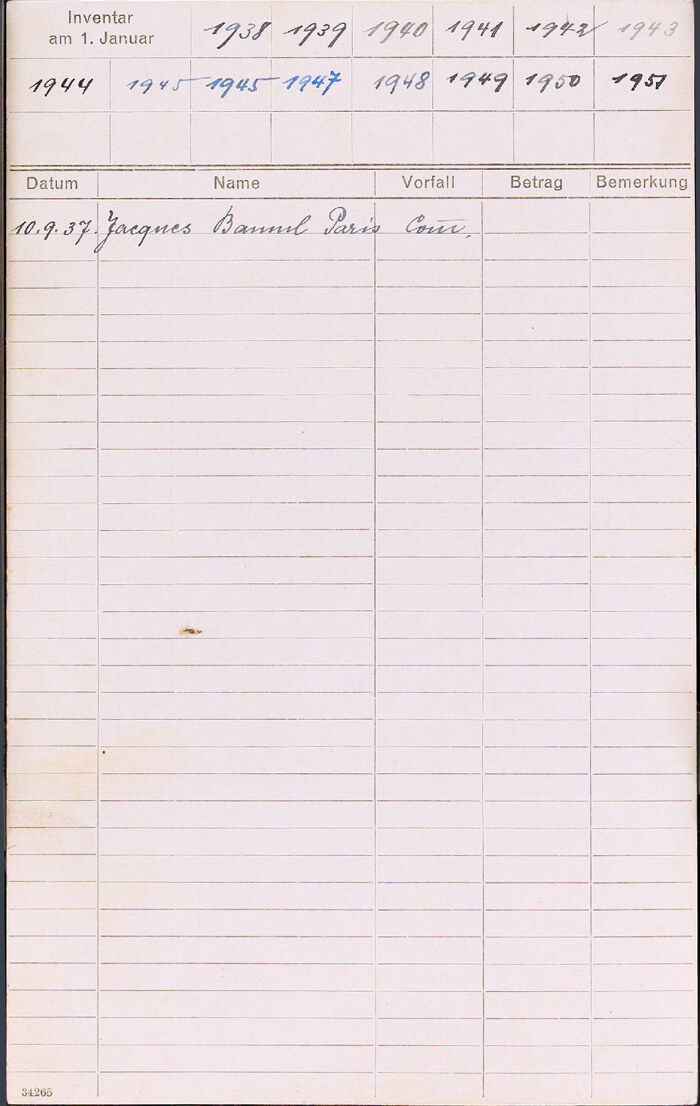 Inventar
am 1. Januar
1938 1939 1940 1941 1942 1943
1944 1945 1945 1947 1948 1949 1950 1951
Datum Name Vorfall Betrag Bemerkung
10.9.37. Jacques Bammel Paris Com.
34265